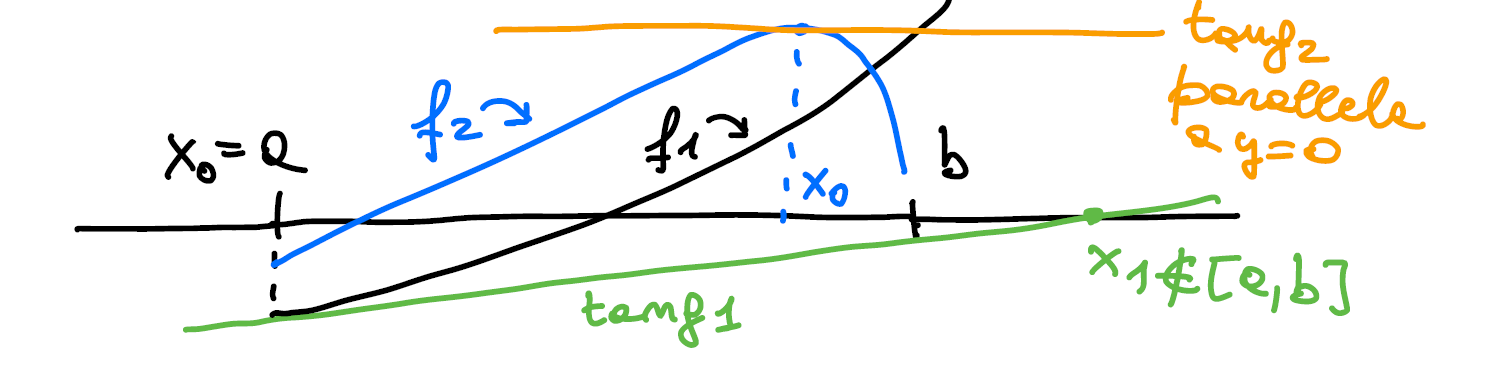 tang2
parallela
a y=0
f2
f1
x0=a
b
x0
x1∉[a,b]
tang1